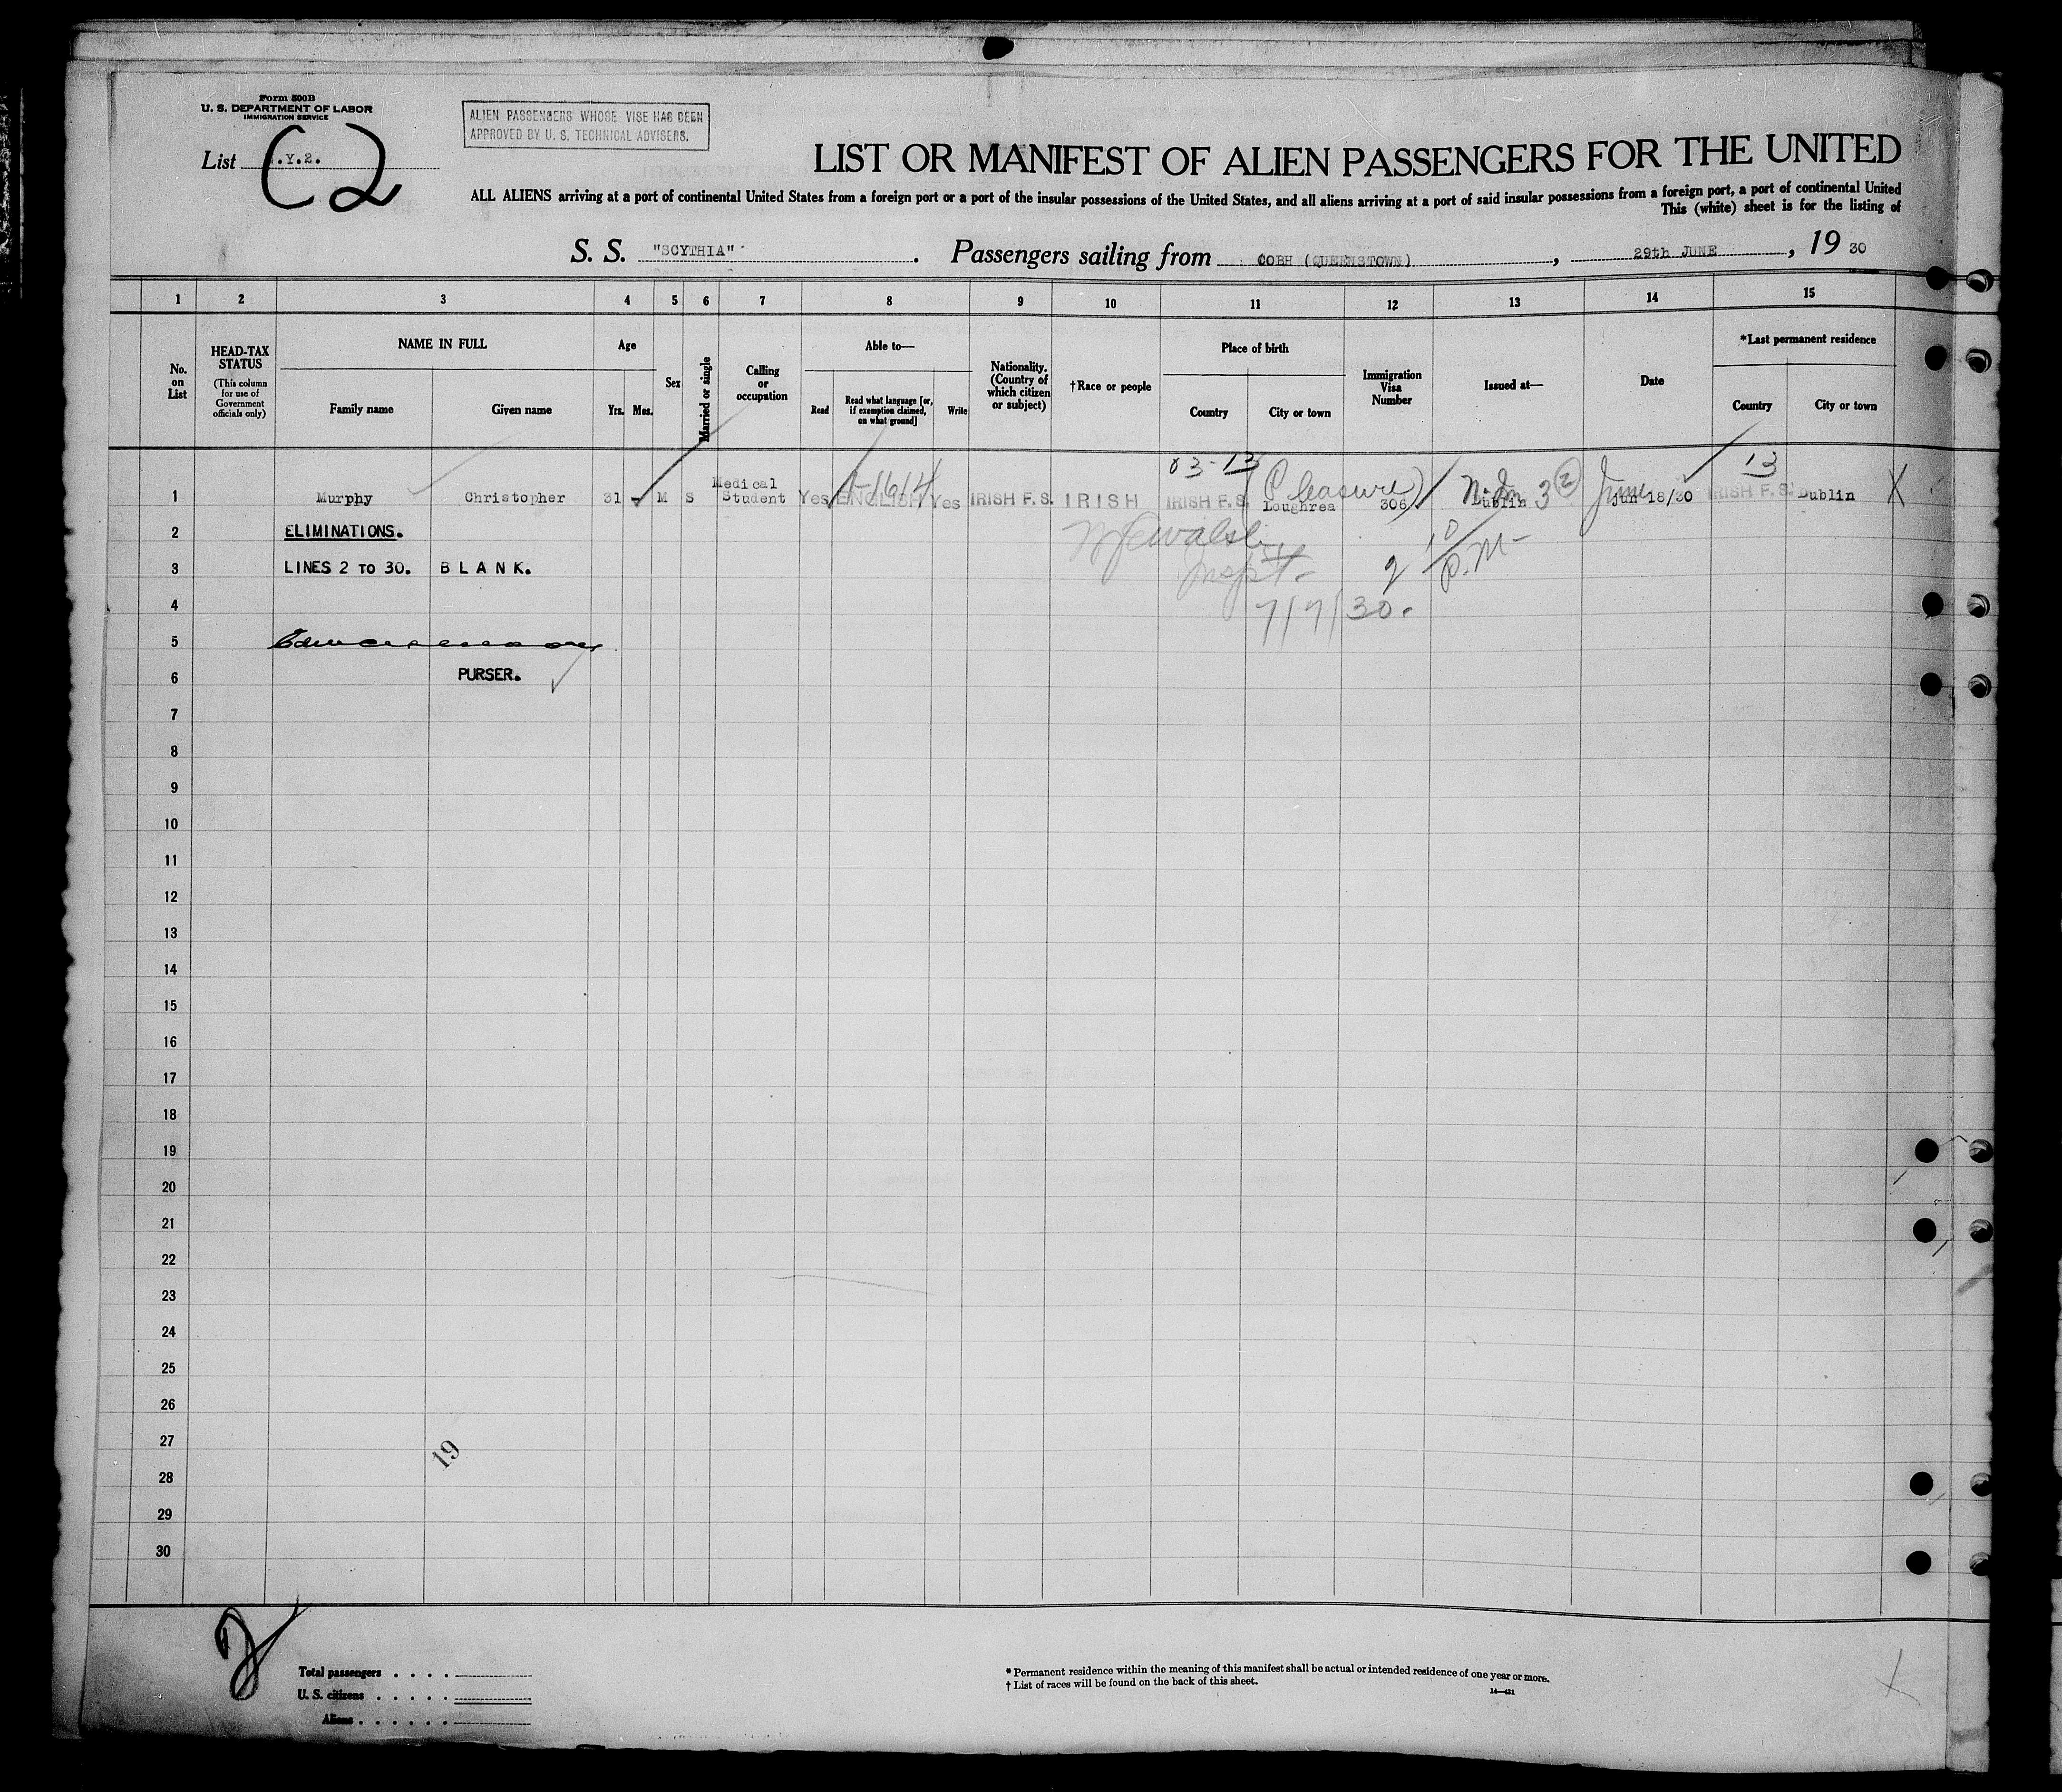 Form 500B
U. S. DEPARTMENT OF LABOR
IMMIGRATION SERVICE
ALIEN PASSENGERS WHOSE VISE HAS BEEN
APPROVED BY U. S. TECHNICAL ADVISERS.
List .Y.2.
C2
LIST OR MANIFEST OF ALIEN PASSENGERS FOR THE UNITED
ALL ALIENS arriving at a port of continental United States from a foreign port or a port of the insular possessions of the United States, and all aliens arriving at a port of said insular possessions from a foreign port, a port of continental United
This (white) sheet is for the listing of
S. S. "SCYTHIA" . Passengers sailing from COBH (QUEENSTOWN) , 29th JUNE , 19 30
1 2 3 4 5 6 7 8 9 10 11 12 13 14 15
No. on List
HEAD-TAX STATUS (This column for use of Government officials only)
NAME IN FULL
Family name
Given name
Age
Yrs. Mos.
Sex
Married or single
Calling or occupation
Able to—
Read
Read what language [or, if exemption claimed, on what ground]
Write
Nationality. (Country of which citizen or subject)
†Race or people
Place of birth
Country
City or town
Immigration Visa Number
Issued at—
Date
*Last permanent residence
Country
City or town
03-13 13
1 Murphy Christopher 31 - M S Medical Student Yes ENGLISH Yes IRISH F.S. IRISH IRISH F.S. Loughrea 306 Dublin Jun 18/30 IRISH F.S. Dublin X
(Pleasure) 3 (2) June
2 ELIMINATIONS.
Walsh
3 LINES 2 TO 30. BLANK.
Inspt. 2 10 P.M-
4 7/7/30.
5
6 PURSER.
7
8
9
10
11
12
13
14
15
16
17
18
19
20
21
22
23
24
25
26
27
19
28
29
30
2
Total passengers . . . .
U. S. citizens . . . . .
Aliens . . . . . .
* Permanent residence within the meaning of this manifest shall be actual or intended residence of one year or more.
† List of races will be found on the back of this sheet.
14—421